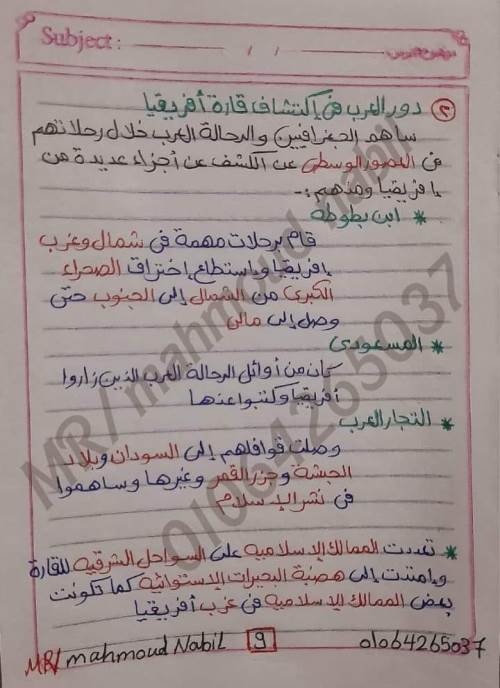 Subject:
/ /
② دور العرب فى إكتشاف قارة أفريقيا
ساهم الجغرافيين والرحالة العرب خلال رحلاتهم
فى العصور الوسطى عن الكشف عن أجزاء عديدة من
إفريقيا ومنهم :-
* ابن بطوطة
قام برحلات مهمة فى شمال وغرب
إفريقيا وإستطاع إختراق الصحراء
الكبرى من الشمال إلى الجنوب حتى
وصل إلى مالى
* المسعودى
كان من أوائل الرحالة العرب الذين زاروا
أفريقيا وكتبوا عنها
* التجار العرب
وصلت قوافلهم إلى السودان وبلاد
الحبشة وجزر القمر وغيرها وساهموا
فى نشر الإسلام
* تعددت الممالك الإسلامية على السواحل الشرقية للقارة
وإمتدت إلى هضبة البحيرات الإستوائية كما تكونت
بعض الممالك الإسلامية فى غرب أفريقيا
MR/ mahmoud Nabil 9 01064265037
MR/ mahmoud nabil
01064265037